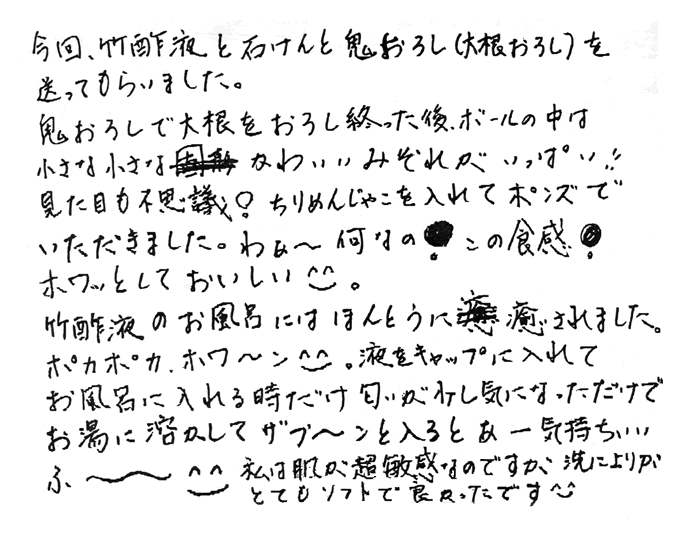 今回、竹酢液と石けんと鬼おろし(大根おろし)を
送ってもらいました。
鬼おろしで大根をおろし終った後、ボールの中は
小さな小さな かわいいみぞれがいっぱい!!
見た目も不思議! ちりめんじゃこを入れてポンズで
いただきました。わぁ〜何なの! この食感!
ホワッとしておいしい^^。
竹酢液のお風呂にはほんとうに 癒されました。
ポカポカ、ホワ〜ン^^。液をキャップに入れて
お風呂に入れる時だけ匂いが少し気になっただけで
お湯に溶かしてザブ〜ンと入るとあー気持ちいい
ふ〜〜 ^^ 私は肌が超敏感なのですが、洗い上りが
とてもソフトで良かったです^^